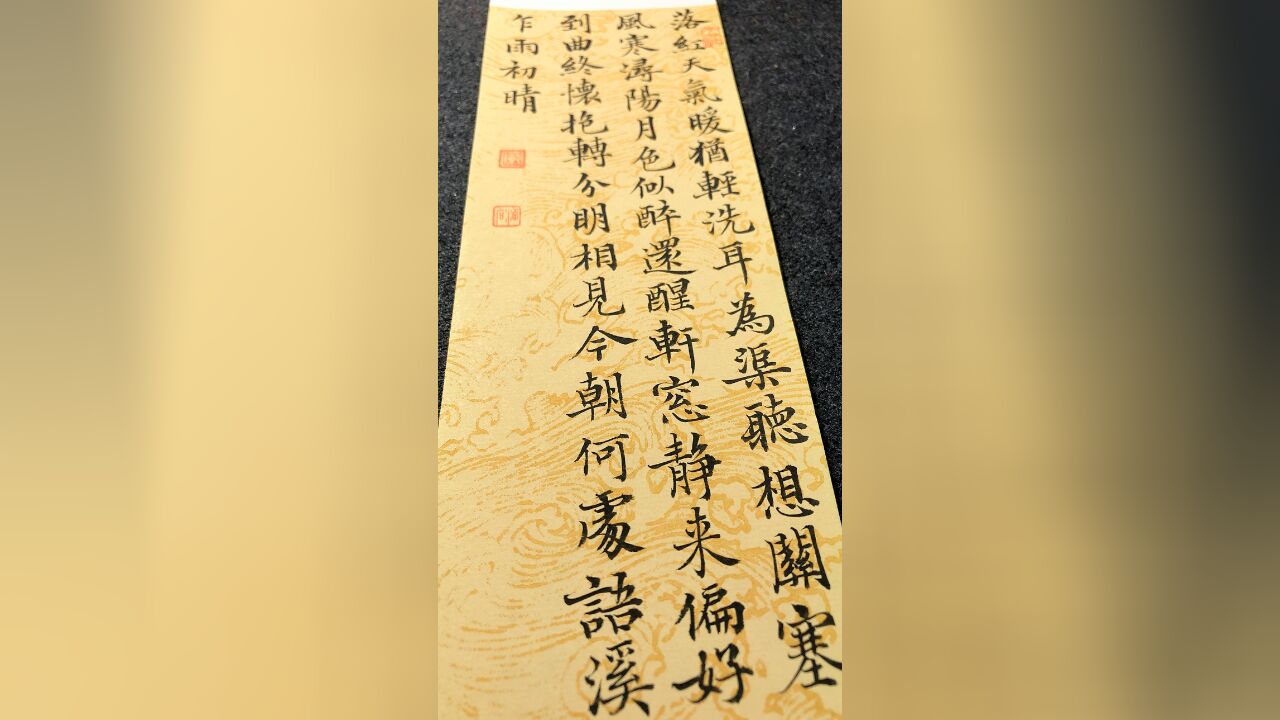 落紅天氣暖猶輕洗耳為渠聽想關塞
風寒潯陽月色似醉還醒軒窓静来偏好
到曲終懷抱轉分明相見今朝何處語溪
乍雨初晴